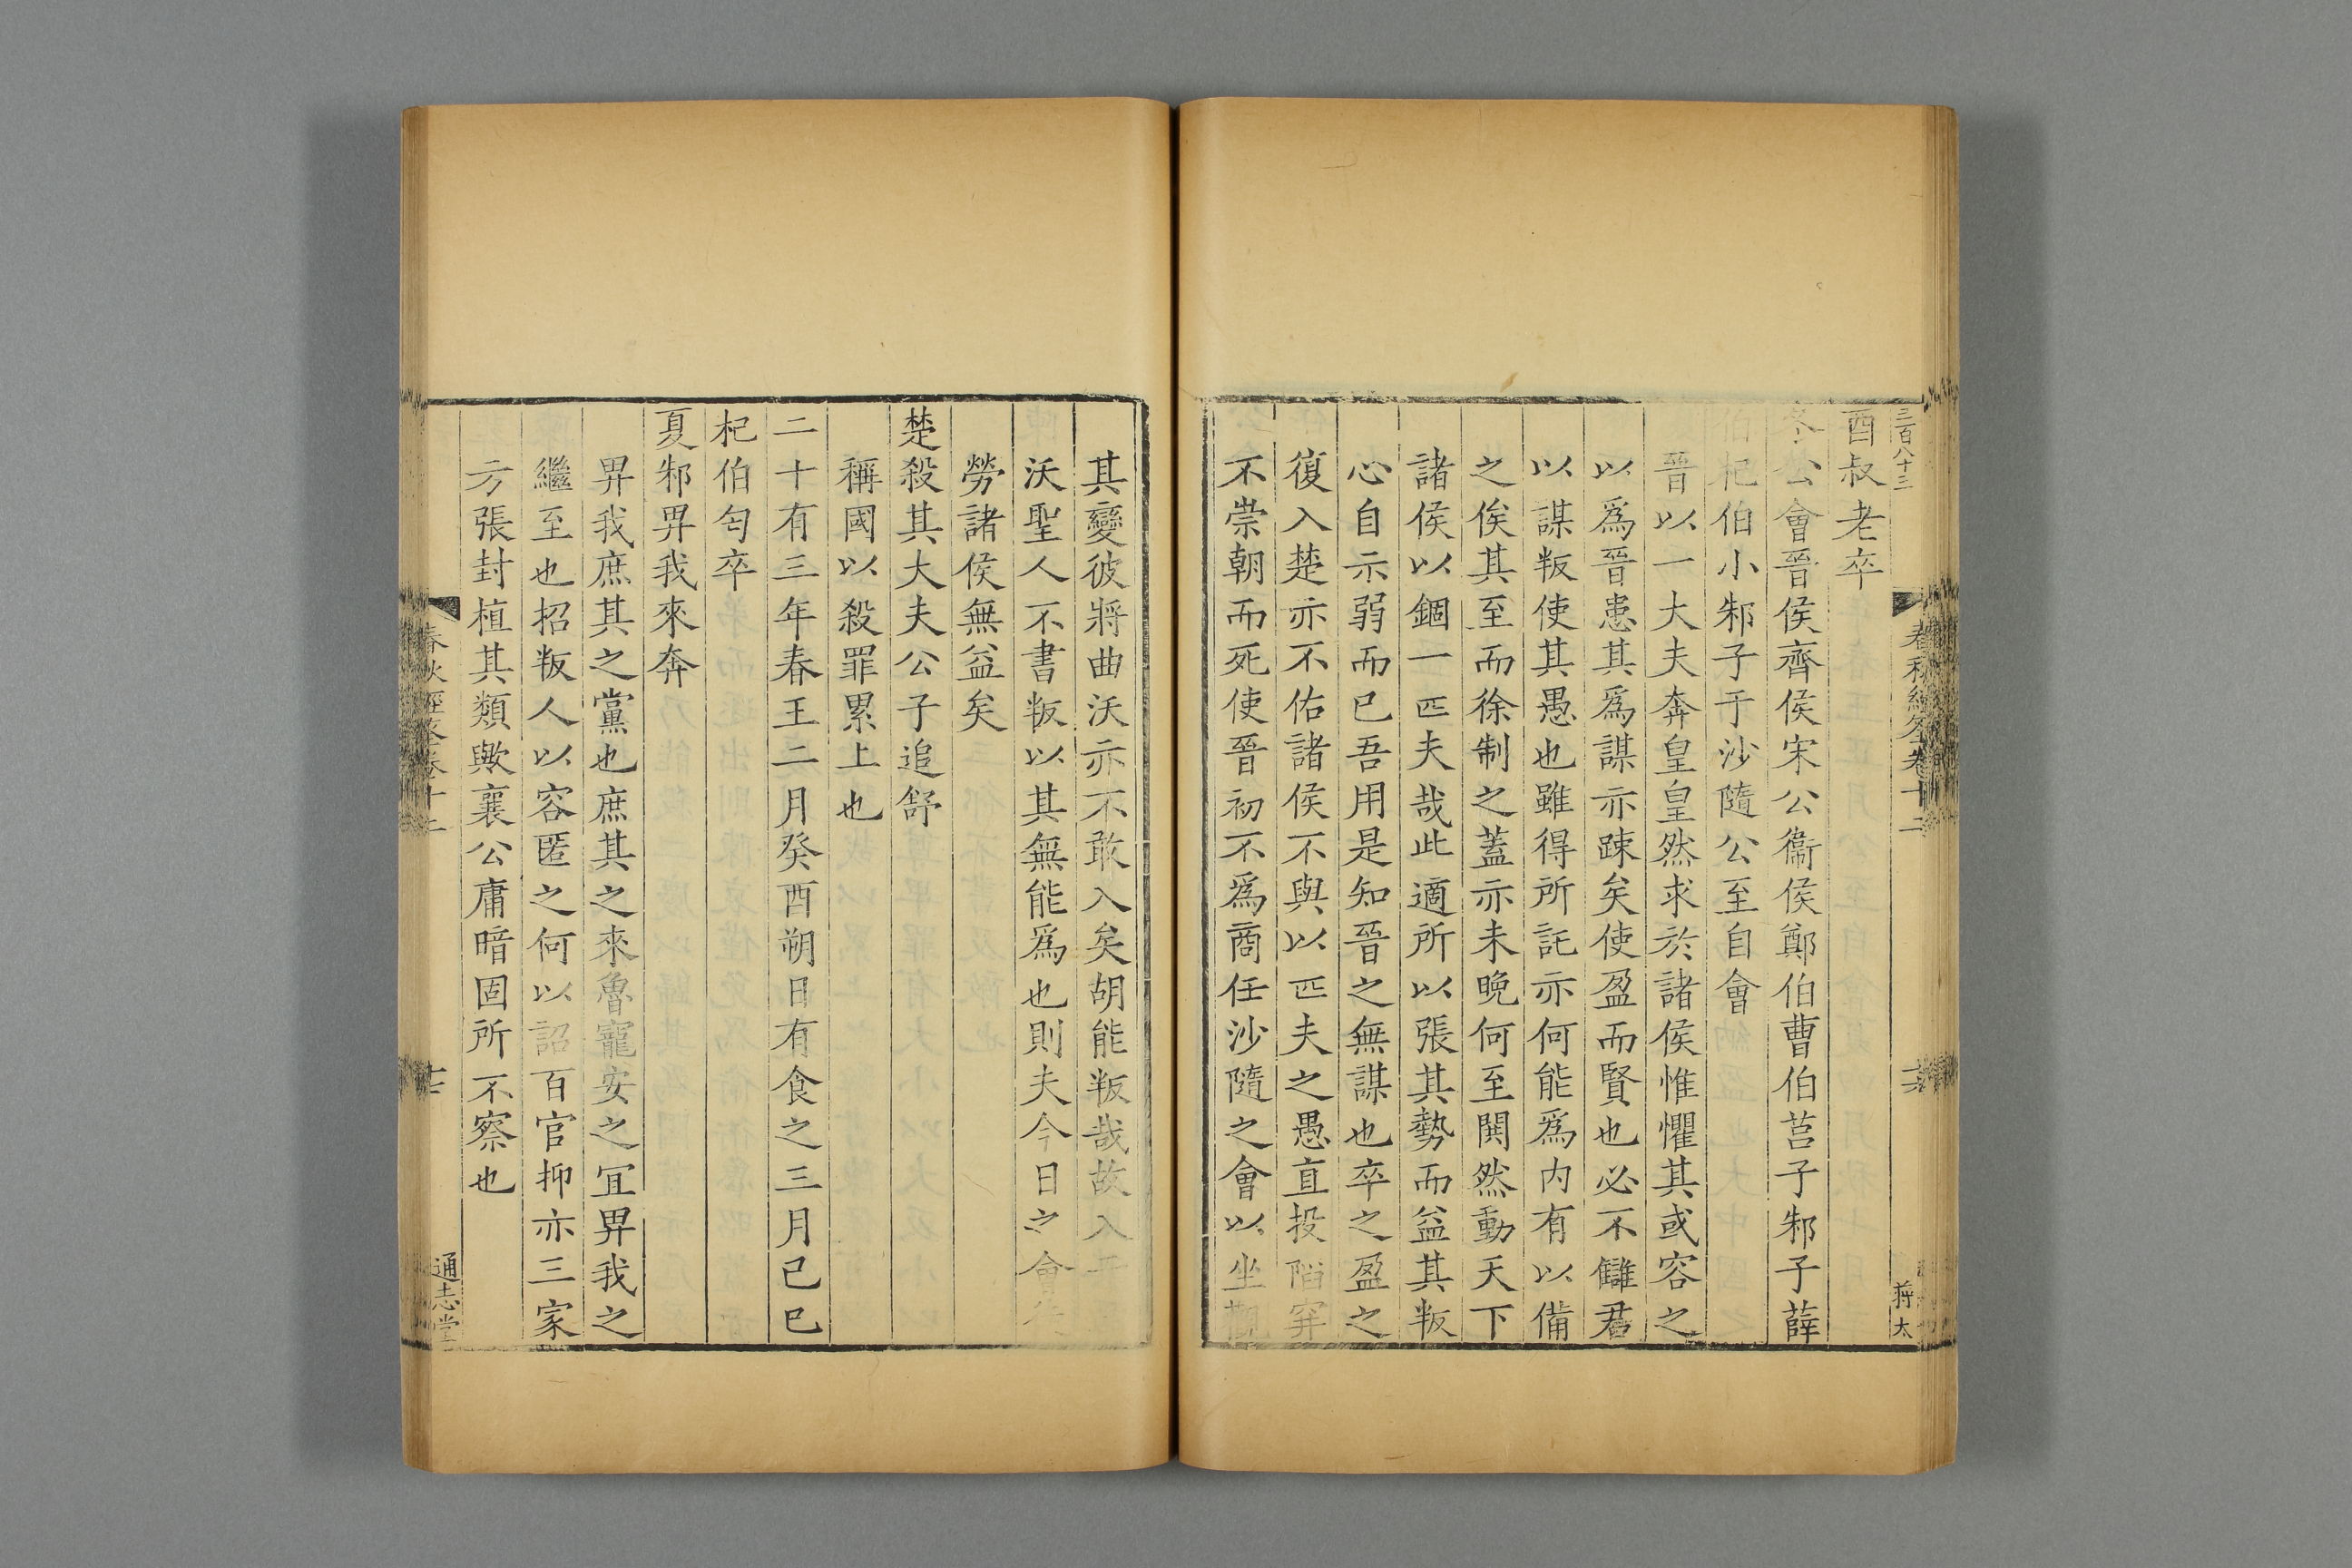 三百八十三
酉叔老卒
冬公會晉侯齊侯宋公衞侯鄭伯曹伯莒子邾子薛
伯杞伯小邾子于沙隨公至自會
晉以一大夫奔皇皇然求於諸侯惟懼其或容之
以爲晉患其爲謀亦踈矣使盈而賢也必不讎君
以謀叛使其愚也雖得所託亦何能爲内有以備
之俟其至而徐制之蓋亦未晩何至閧然動天下
諸侯以錮一匹夫哉此適所以張其勢而益其叛
心自示弱而已吾用是知晉之無謀也卒之盈之
復入楚亦不佑諸侯不與以匹夫之愚直投陷穽
不崇朝而死使晉初不爲商任沙隨之會以坐觀
其變彼將曲沃亦不敢入矣胡能叛哉故入于
沃聖人不書叛以其無能爲也則夫今日之會
勞諸侯無益矣
楚殺其大夫公子追舒
稱國以殺罪累上也
二十有三年春王二月癸酉朔日有食之三月己巳
杞伯匄卒
夏邾畀我來奔
畀我庶其之黨也庶其之來魯寵安之宜畀我之
繼至也招叛人以容匿之何以詔百官抑亦三家
方張封植其類歟襄公庸暗固所不察也
通志堂